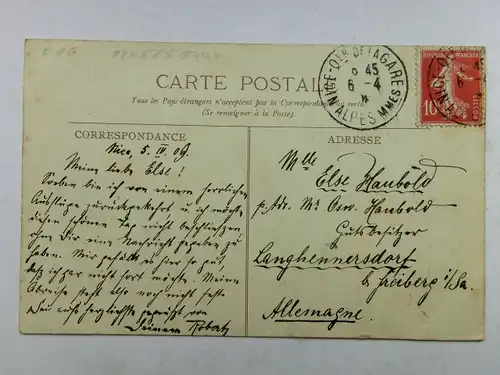 CARTE POSTALE
Tous les Pays étrangers n'acceptent pas la Correspondance au recto
(Se renseigner à la Poste).
CORRESPONDANCE
Nice, 5. IV. 09.
Meine liebe Else!
Soeben bin ich von einem herrlichen
Ausfluge zurückgekehrt u. ich möchte
diesen schönen Tag nicht beschließen,
ohne Dir eine Nachricht gegeben zu
haben. Mir gefällt es hier so gut,
daß ich gar nicht fort möchte. Meine
Abreise steht also noch nicht fest.
Sei aufs herzlichste gegrüßt von
Deinem Robert
ADRESSE
Mlle
Else Haubold
p. Adr. Mr. Osw. Haubold
Gutsbesitzer
Langhennersdorf
b. Freiberg i/Sa.
Allemagne.
NICE-QER DE LA GARE
45
6-4
ALPES MMES
10
POSTES